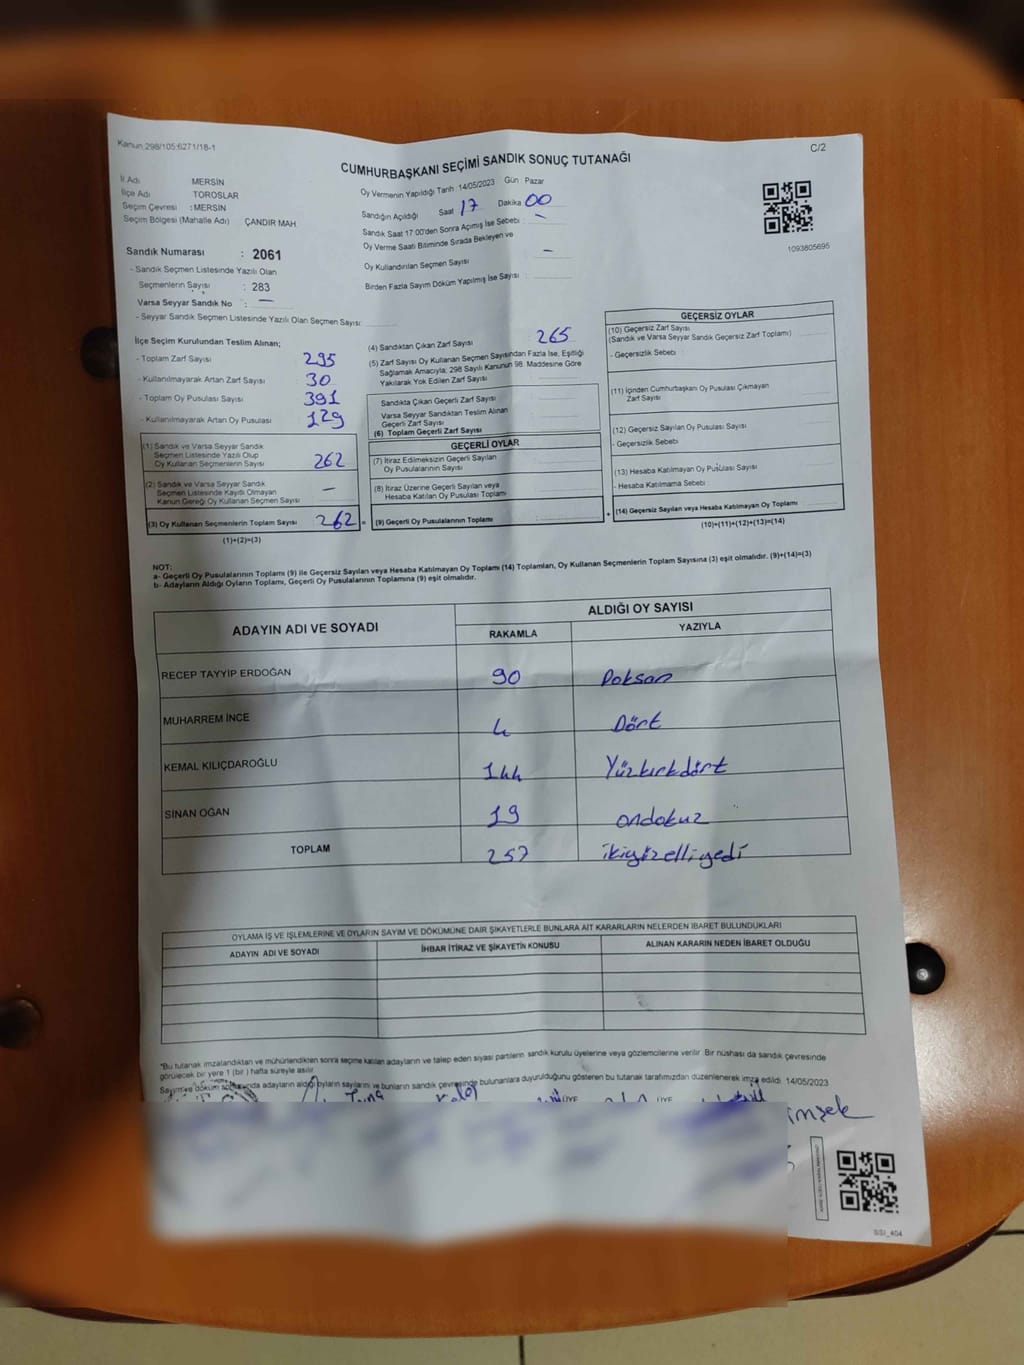 Kanun 298/105;6271/18-1
C/2
CUMHURBAŞKANI SEÇİMİ SANDIK SONUÇ TUTANAĞI
İl Adı MERSİN
İlçe Adı TOROSLAR
Seçim Çevresi : MERSİN
Seçim Bölgesi (Mahalle Adı) ÇANDIR MAH
Oy Vermenin Yapıldığı Tarih : 14/05/2023 Gün : Pazar
Sandığın Açıldığı Saat 17 Dakika 00
Sandık Saat 17:00'den Sonra Açımış İse Sebebi : -
Oy Verme Saati Bitiminde Sırada Bekleyen ve
Oy Kullandırılan Seçmen Sayısı -
Birden Fazla Sayım Döküm Yapılmış İse Sayısı :
1093805695
Sandık Numarası : 2061
- Sandık Seçmen Listesinde Yazılı Olan
Seçmenlerin Sayısı : 283
Varsa Seyyar Sandık No : -
- Seyyar Sandık Seçmen Listesinde Yazılı Olan Seçmen Sayısı:
İlçe Seçim Kurulundan Teslim Alınan;
- Toplam Zarf Sayısı 295
- Kullanılmayarak Artan Zarf Sayısı 30
- Toplam Oy Pusulası Sayısı 391
- Kullanılmayarak Artan Oy Pusulası 129
(1) Sandık ve Varsa Seyyar Sandık
Seçmen Listesinde Yazılı Olup
Oy Kullanan Seçmenlerin Sayısı 262
(2) Sandık ve Varsa Seyyar Sandık
Seçmen Listesinde Kayıtlı Olmayan
Kanun Gereği Oy Kullanan Seçmen Sayısı -
(3) Oy Kullanan Seçmenlerin Toplam Sayısı 262
(1)+(2)=(3)
(4) Sandıktan Çıkan Zarf Sayısı 265
(5) Zarf Sayısı Oy Kullanan Seçmen Sayısından Fazla İse, Eşitliği
Sağlamak Amacıyla; 298 Sayılı Kanunun 98. Maddesine Göre
Yakılarak Yok Edilen Zarf Sayısı
Sandıkta Çıkan Geçerli Zarf Sayısı
Varsa Seyyar Sandıktan Teslim Alınan
Geçerli Zarf Sayısı
(6) Toplam Geçerli Zarf Sayısı
GEÇERLİ OYLAR
(7) İtiraz Edilmeksizin Geçerli Sayılan
Oy Pusulalarının Sayısı
(8) İtiraz Üzerine Geçerli Sayılan veya
Hesaba Katılan Oy Pusulası Toplamı
= (9) Geçerli Oy Pusulalarının Toplamı
GEÇERSİZ OYLAR
(10) Geçersiz Zarf Sayısı
(Sandık ve Varsa Seyyar Sandık Geçersiz Zarf Toplamı)
- Geçersizlik Sebebi
(11) İçinden Cumhurbaşkanı Oy Pusulası Çıkmayan
Zarf Sayısı
(12) Geçersiz Sayılan Oy Pusulası Sayısı
- Geçersizlik Sebebi
(13) Hesaba Katılmayan Oy Pusulası Sayısı
- Hesaba Katılmama Sebebi
+ (14) Geçersiz Sayılan veya Hesaba Katılmayan Oy Toplamı
(10)+(11)+(12)+(13)=(14)
NOT:
a- Geçerli Oy Pusulalarının Toplamı (9) ile Geçersiz Sayılan veya Hesaba Katılmayan Oy Toplamı (14) Toplamları, Oy Kullanan Seçmenlerin Toplam Sayısına (3) eşit olmalıdır. (9)+(14)=(3)
b- Adayların Aldığı Oyların Toplamı, Geçerli Oy Pusulalarının Toplamına (9) eşit olmalıdır.
ADAYIN ADI VE SOYADI
ALDIĞI OY SAYISI
RAKAMLA YAZIYLA
RECEP TAYYİP ERDOĞAN 90 Doksan
MUHARREM İNCE 4 Dört
KEMAL KILIÇDAROĞLU 144 Yüzkırkdört
SİNAN OĞAN 19 ondokuz
TOPLAM 257 ikiyüzelliyedi
OYLAMA İŞ VE İŞLEMLERİNE VE OYLARIN SAYIM VE DÖKÜMÜNE DAİR ŞİKAYETLERLE BUNLARA AİT KARARLARIN NELERDEN İBARET BULUNDUKLARI
ADAYIN ADI VE SOYADI İHBAR İTİRAZ VE ŞİKAYETİN KONUSU ALINAN KARARIN NEDEN İBARET OLDUĞU
*Bu tutanak imzalandıktan ve mühürlendikten sonra seçime katılan adayların ve talep eden siyasi partilerin sandık kurulu üyelerine veya gözlemcilerine verilir. Bir nüshası da sandık çevresinde
görülecek bir yere 1 (bir) hafta süreyle asılır.
Sayım ve döküm sonunda adayların aldığı oyların sayılarını ve bunların sandık çevresinde bulunanlara duyurulduğunu gösteren bu tutanak tarafımızdan düzenlenerek imza edildi. 14/05/2023
ÜYE ÜYE
SSI_404